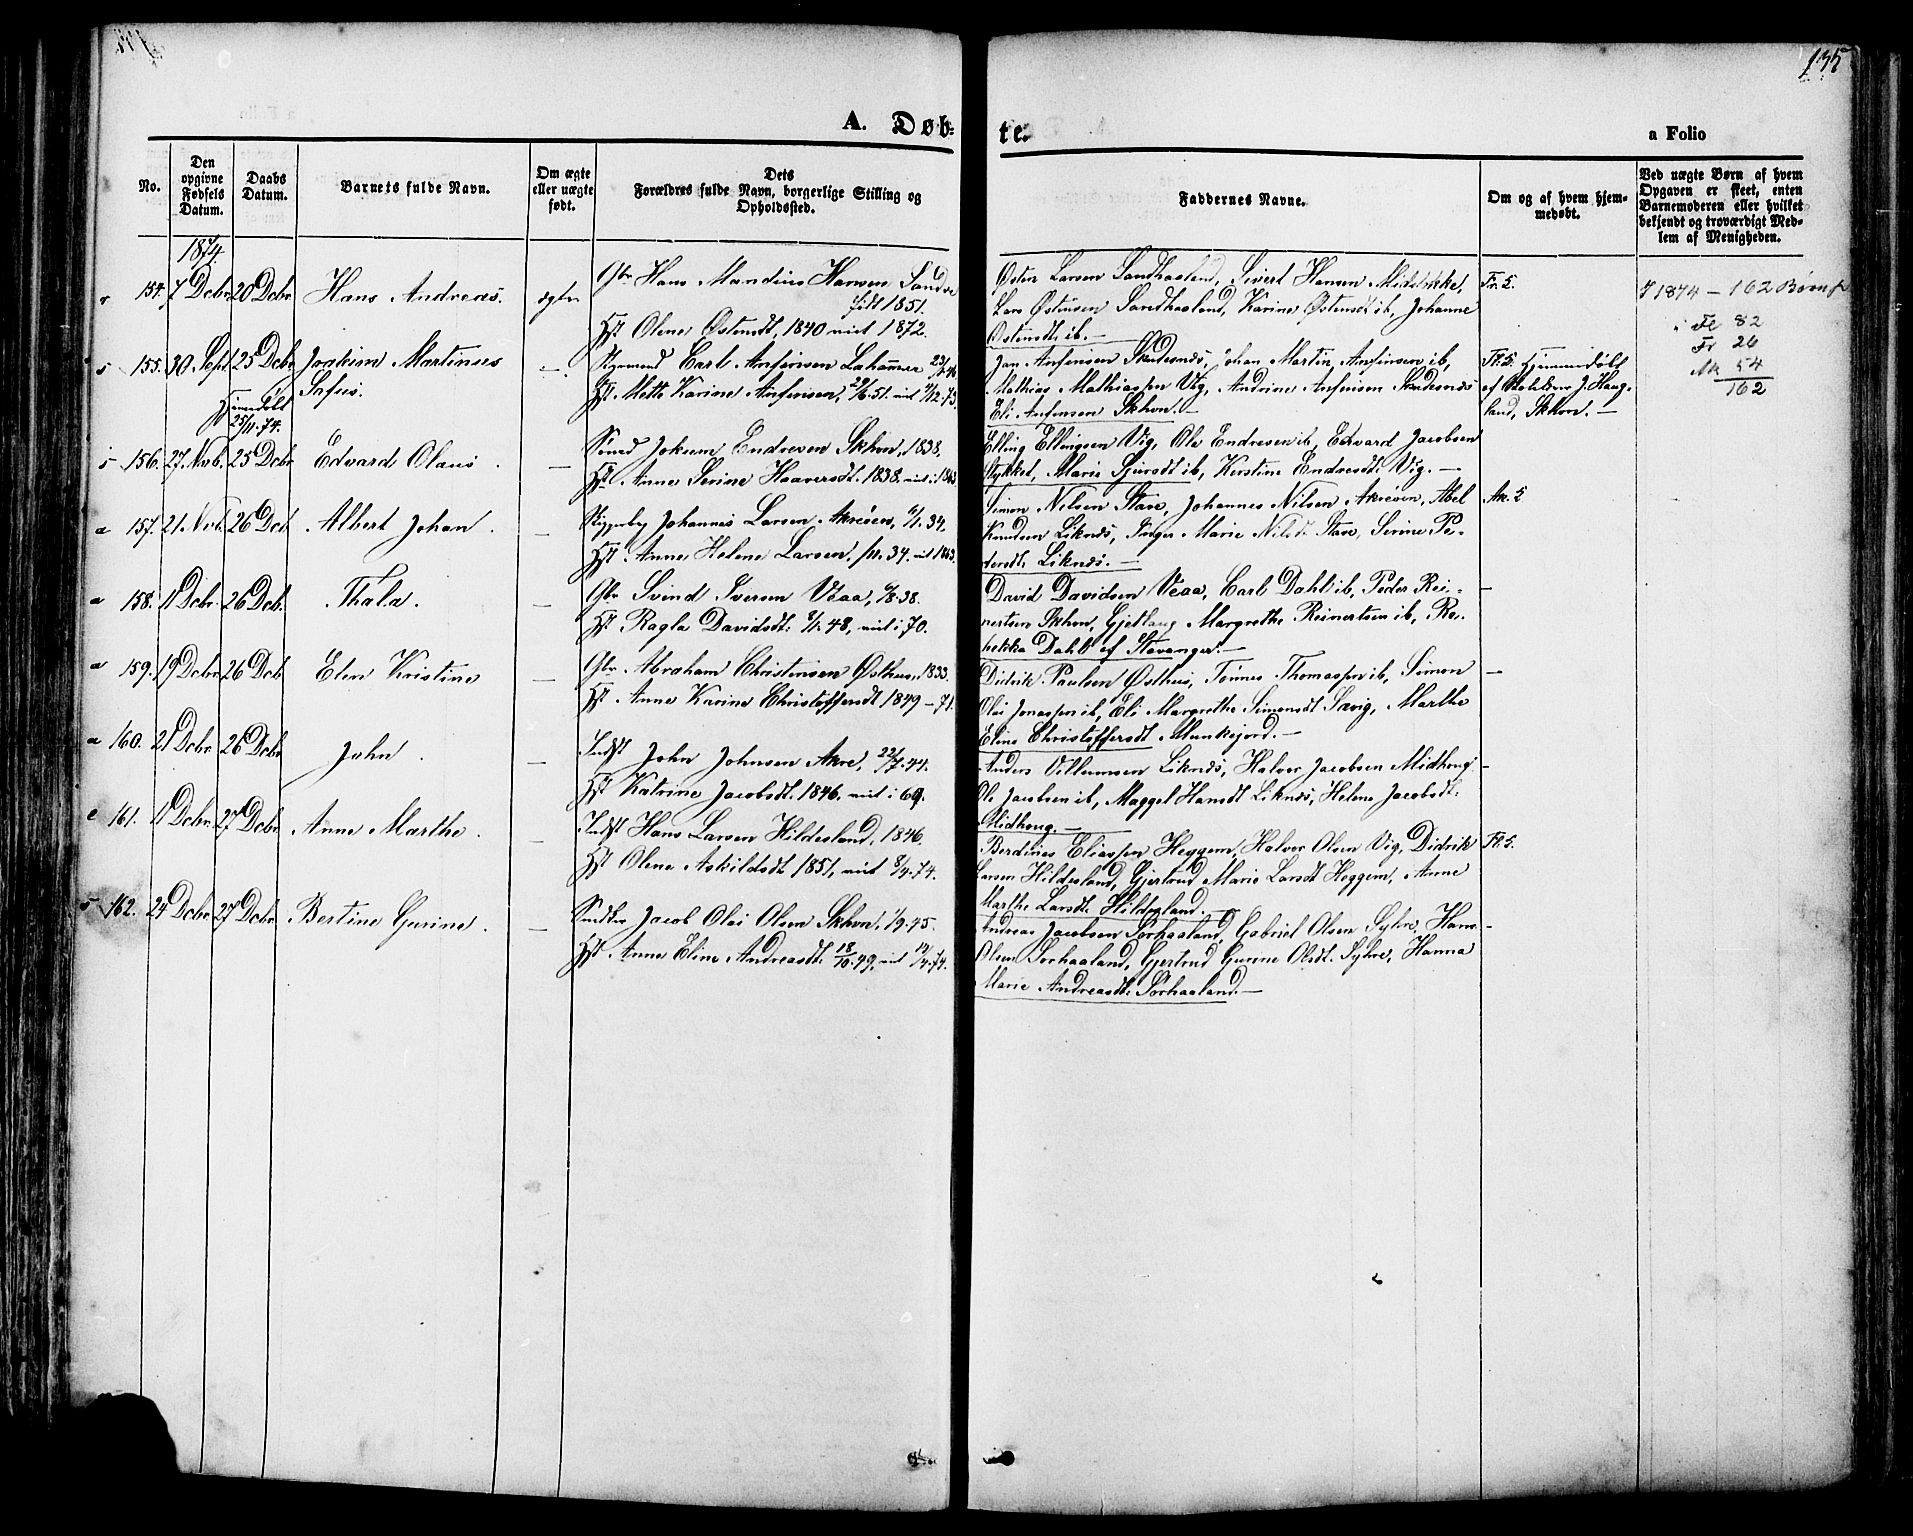 135
A. Døb-
te.
a Folio
No.
Den opgivne Fødsels Datum.
Daabs Datum.
Barnets fulde Navn.
Om ægte eller uægte født.
Dets Forældres fulde Navn, borgerlige Stilling og Opholdssted.
Faddernes Navne.
Om og af hvem hjemmedøbt.
Ved uægte Børn af hvem Opgaven er skeet, enten Barnemoderen eller hvilket bekjendt og troværdigt Medlem af Menigheden.
1874.
154. 7 Dcbr 20 Dcbr Hans Andreas. ægte
Gbr Hans Mandius Hansen Sandve
født 1851.
Hst Olene Østensdt, 1840 viet 1872.
Østen Larsen Sandhaaland, Sivert Hansen Midtstkke,
Lars Østensen Sandhaaland, Karine Østensdt ib, Johanne
Østensdt ib.—
Fr. 5.
I 1874 - 162 Børn
Fl 82
Fr 26
Ak 54
162
s 155. 30 Sept 25 Dcbr Joakim Martinus —
Safus.
Hjemmedøbt
25/11.74.
Styrmand Carl Anfinsen Lahammer
Hst. Mette Karine Anfensen, 29/6.51. viet 7/12.73.
Jan Anfensen Skudesnæs, Johan Martin Anfinsen ib,
Mathias Mathiassen Vig, Andrine Anfensen Skudesnæs
Eli Anfensen Skhvn.—
Fl. 5. Hjemmedøbt
af Skoleldrer J. Haugland, Skhvn.—
s 156. 27 Nvb. 25 Dcbr Edvard Olaus. —
Sømd Jokum Endresen Skhvn, 1838.
Hst. Anne Serine Haaversdt. 1838. viet i 1863
Elling Ellingsen Vig, Ole Endresen ib, Edvard Jacobsen
Stykket, Marie Sjursdt ib, Kerstine Endresdt. Vig.—
a 157. 21 Nvb. 26 Dcb Albert Johan. —
Skipperby Johannes Larsen Akreøen, 6/1.34.
Hst. Anne Helene Larsen, 34. viet 1863.
Simon Nilsen Stave, Johannes Nilsen Akreøen, Abel
Knudsen Liknæs, Inger Marie Nilsdt Stave, Serine Pe-
dersdt. Liknæs.—
Ak. 5
a 158. 11 Dcbr 26 Dcb. Thala. —
Gbr Svend Iversen Veaa, 6/8.38.
Hst Ragla Davidsdt: 48, viet i 70.
David Davidsen Veaa, Carl Dahl ib, Peder Rei-
nertsen Skhvn, Gjetlaug Margrethe Reinertsen ib, Re-
bekka Dahl af Stavanger.— —
a 159. 19 Dcbr. 26 Dcb Elen Kristine —
Gbr. Abraham Christensen Østhus, 1833.
Hst Anne Karine Christoffersdt 1849 – 71.
Didrik Paulsen Østhus, Tønnes Thomassen ib, Simon
Olai Jonassen ib, Eli Margrethe Simonsdt Sævig, Marthe
Eline Christoffersdt Munkejord.— —
a 160. 21 Dcbr 26 Dcb John. —
Indst John Johnsen Akre, 22/7.41.
Hst Katrine Jacobsdt. 1846. viet i 69.
Anders Villumsen Liknæs, Halvor Jacobsen Midhoug
Ole Jacobsen ib, Maggel Hansdt Liknæs, Helene Jacobsdt.
Midhoug.— —
161. 11 Dcbr. 27 Dcbr Anne Marthe. —
Indst Hans Larsen Hildesland, 1846.
Hst Olene Askildsdt 1851, viet 8/4.74.
Berdines Eliassen Heggem, Halvor Olsen Vig, Didrik
Larsen Hildesland, Gjertrud Marie Larsdt Heggem, Anne
Marthe Larsdt. Hildesland.—
Fl. 5.
s 162. 24 Dcbr 27 Dcbr Bertine Gurine. —
Jacob Olai Olsen Skhvn, 1/9.45.
Hst Anne Eline Andreasdt. 18/10.49, viet 12/4.74.
Andreas Jacobsen Sørhaaland, Gabriel Olsen Sykve, Hans
Olsen Sørhaaland, Gjertrud Gurine Olsdt. Sykve, Hanna
Marie Andreasdt. Sørhaaland.— —